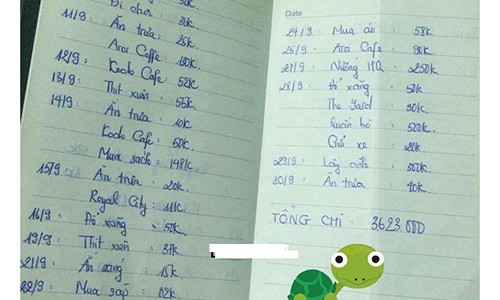 Đi chơi : 30k.
11/9 : Ăn trưa : 25k
Arai Caffe : 130k.
12/9 : Kodo Cafe : 52k
13/9 : Thịt xiên : 55k.
14/9 : Ăn trưa : 10k
Kodo Cafe : 50k.
Mua sách : 148k
15/9 : Ăn trưa : 20k.
Royal City : 11k
16/9 : Đổ xăng : 50k.
19/9 : Thịt xiên : 37k.
21/9 : Ăn sáng : 15k
22/9 : Mua sáp : 62k
Date
24/9 : Mua áo : 58k
25/9 : Arai Cafe : 90k
27/9 : Nướng HQ : 250k
28/9 : Đổ xăng : 50k
The Yard : 90k
Quần bò : 500k.
Gửi xe :
29/9 : Lấy ảnh : 300k
30/9 : Ăn trưa : 40k.
TỔNG CHI : 3623.000